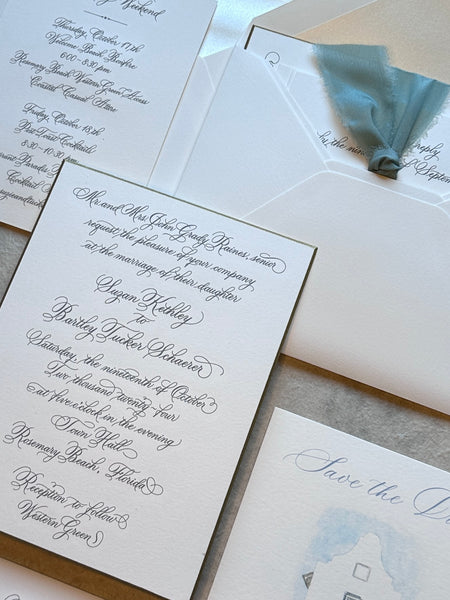 Weekend
Thursday, October 17th
Welcome Beach Bonfire
6:00 - 8:30 pm
Rosemary Beach Western Green Access
Coastal Casual Attire
Friday, October 18th
Post-Toast Cocktails
8:30 - 10:30 pm
Paradis
Cocktail
reply
by the
of Septem
Mr. and Mrs. John Grady Raines, senior
request the pleasure of your company
at the marriage of their daughter
Suzan Keithley
to
Bartley Tucker Schaerer
Saturday, the nineteenth of October
Two thousand twenty four
at five o'clock in the evening
Town Hall
Rosemary Beach, Florida
Reception to follow
Western Green
Save the Da